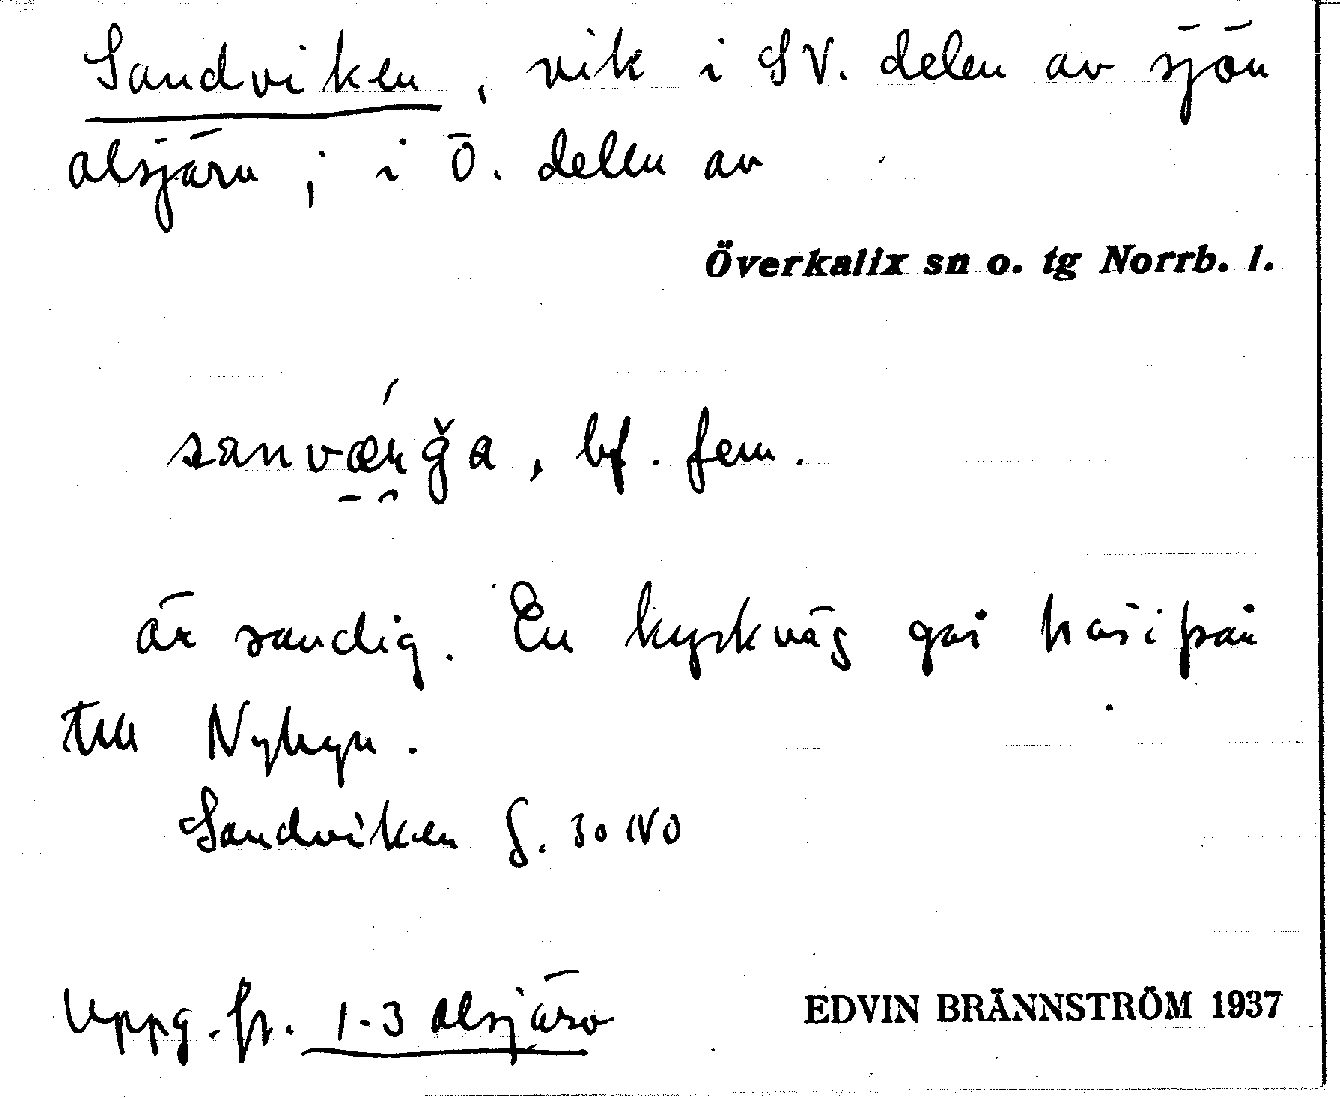 Sandviken, vik i SV. delen av sjön
Alsjärv; i Ö. delen av
Överkalix sn o. tg Norrb. l.
sanværğa, bf. fem.
är sandig. En kyrkväg går härifrån
till Nybyn.
Sandviken G. 30 NO
Uppg. fr. 1-3 Alsjärv
EDVIN BRÄNNSTRÖM 1937